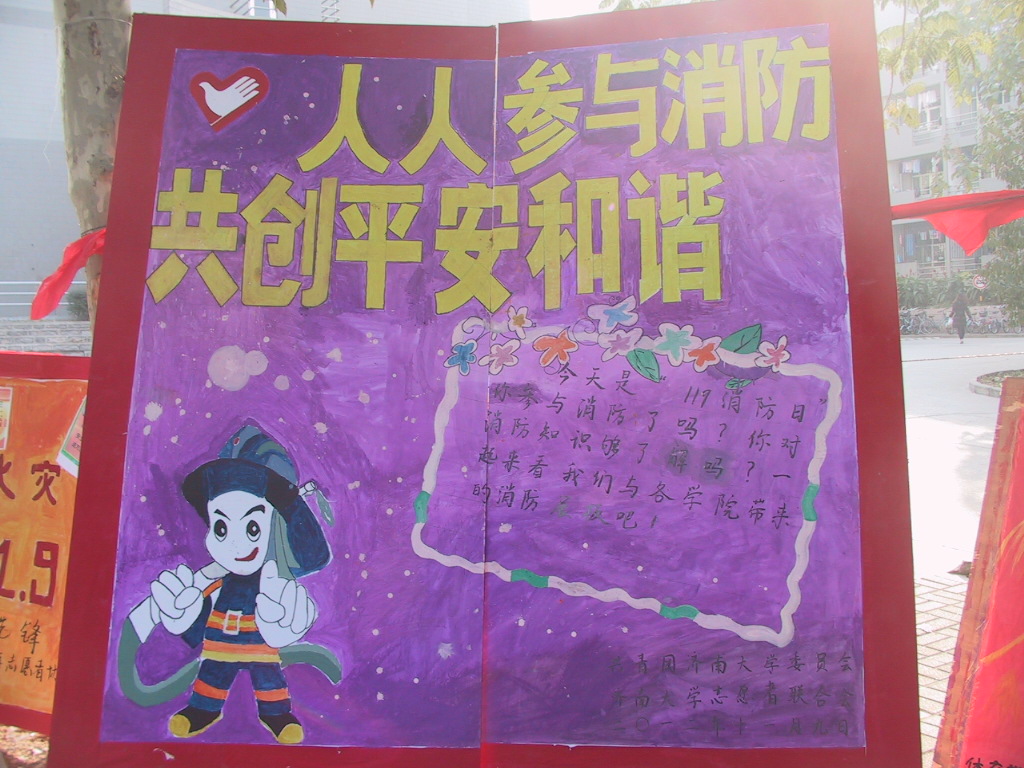 人人参与消防
共创平安和谐
今天是“119消防日”
你参与消防了吗？你对
消防知识够了解吗？一
起来看我们与各学院带来
的消防
吧！
共青团济南大学委员会
济南大学志愿者联合会
二〇一二年十一月九日
火灾
1.9
锋
志愿者协